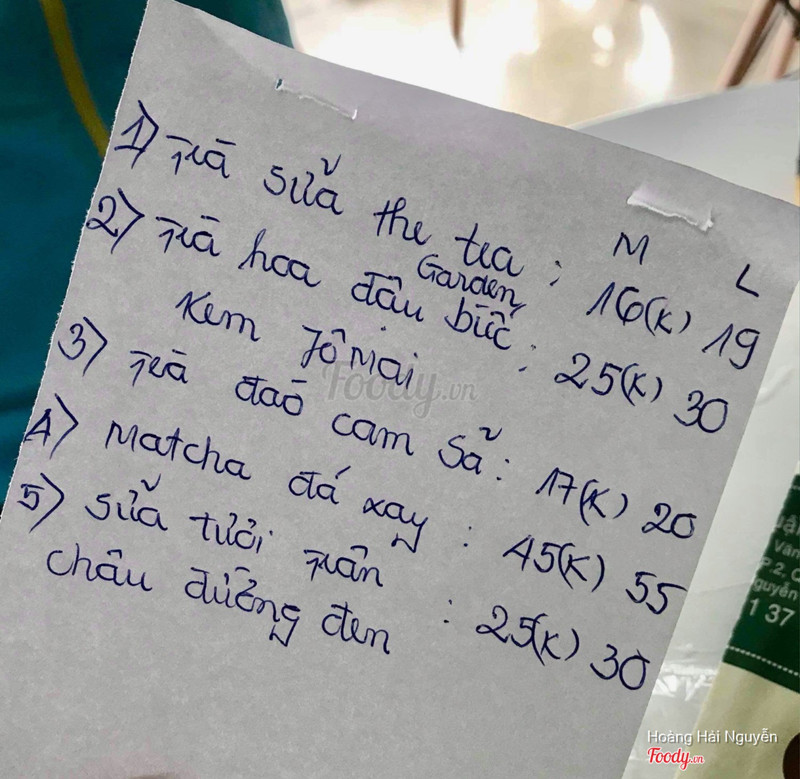 M L
1) Trà sữa the tea : 16(K) 19
Garden
2) Trà hoa đậu biếc : 25(K) 30
Kem Jô Mai
3) Trà đào cam sả : 17(K) 20
4) Matcha đá xay : 45(K) 55
5) Sữa tươi trân
châu đường đen : 25(K) 30
Foody.vn
1 37
Hoàng Hải Nguyễn
Foody.vn